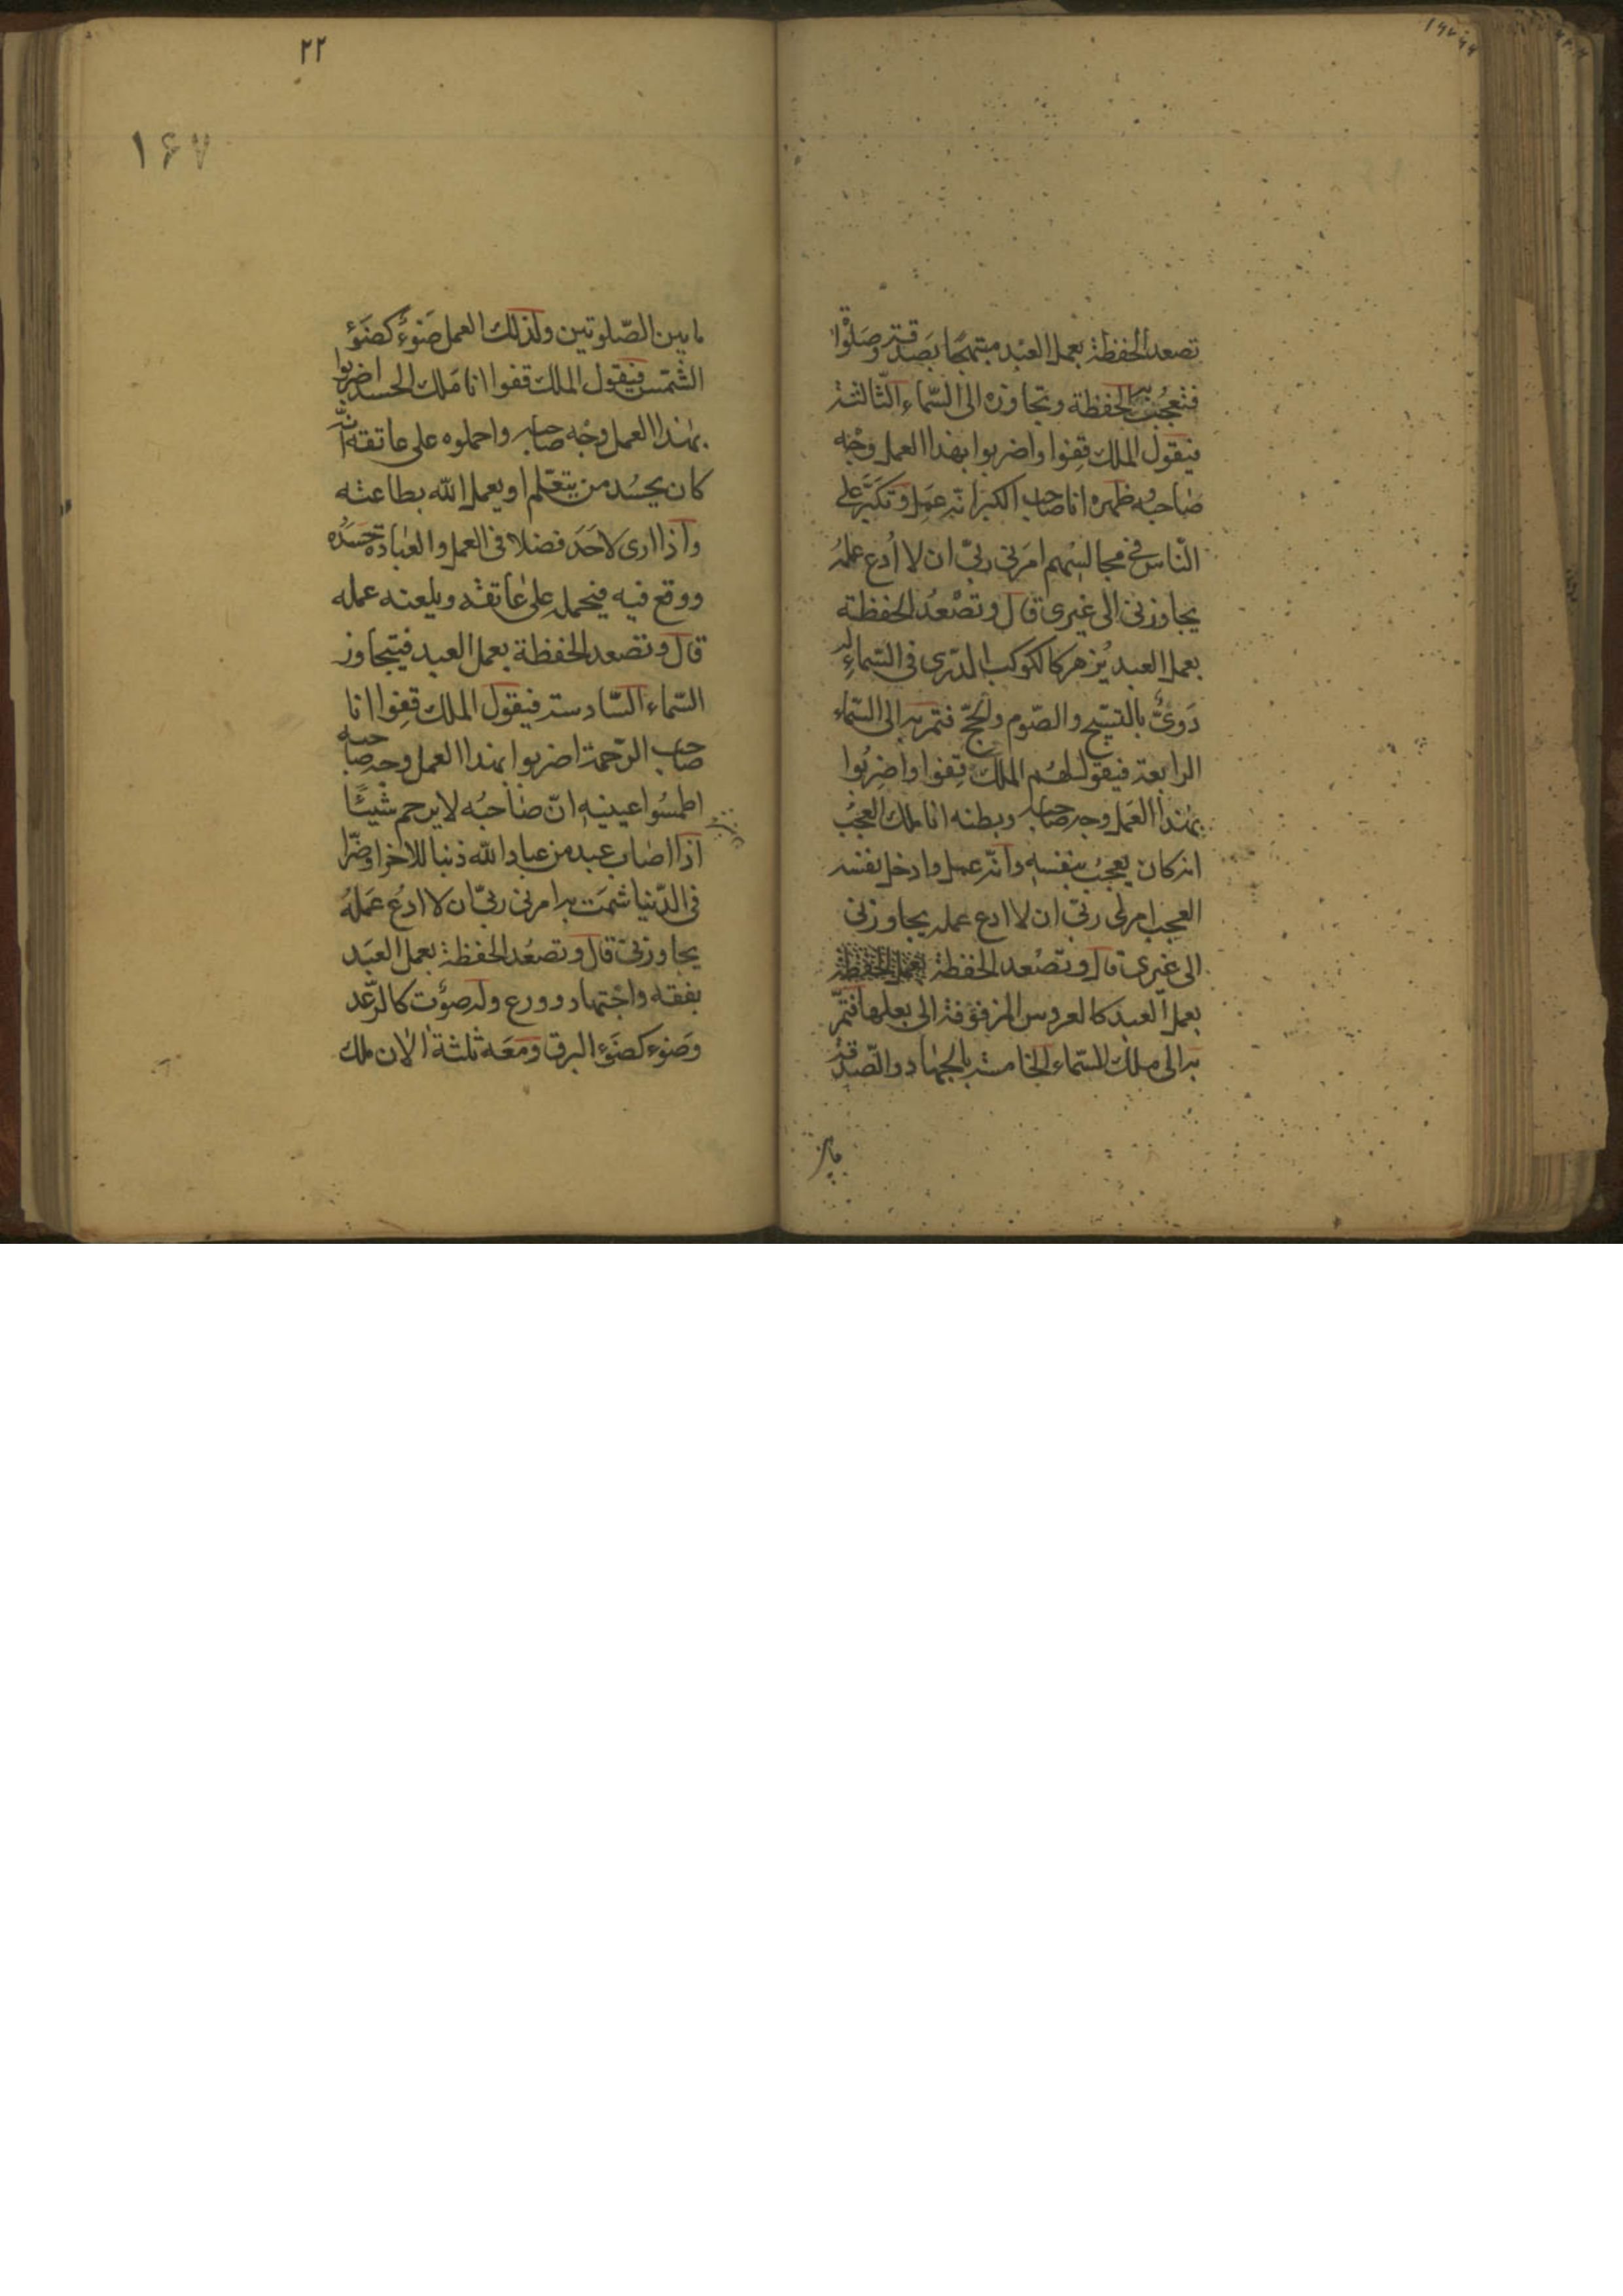 تصعد الحفظة بعمل العبد مبتهجا بصدقة وصلوة
فتعجب الحفظة وتجاوزه الى السّماء الثّالثة
فيقول الملك قفوا واضربوا بهذا العمل وجه
صاحبه وظهره انا صاحب الكبر انّه عمل وتكبّر على
النّاس في مجالسهم امرني ربّي ان لا ادع عمله
يجاوزني الى غيري قال وتصعد الحفظة
بعمل العبد يزهر كالكوكب الدّرى في السّماء له
دوىّ بالتسبيح والصّوم والحجّ فتمر به الى السّماء
الرابعة فيقول لهم الملك قفوا واضربوا
بهذا العمل وجه صاحبه وبطنه انا ملك العجب
انه كان يعجب بنفسه وانّه عمل وادخل نفسه
العجب امرني ربّي ان لا ادع عمله يجاوزني
الى غيري قال وتصعد الحفظة
بعمل العبد كالعروس المزفوفة الى بعلها فتمّر
به الى ملك السّماء الخامسة بالجهاد والصّدقة
مابين
٢٢
١٦٧
مابين الصّلوتين ولذلك العمل ضوء كضوء
الشّمس فيقول الملك قفوا انا ملك الحسد اضربوا
بهذا العمل وجه صاحبه واحملوه على عاتقه انّه
كان يحسد من يتعّلم او يعمل الله بطاعته
واذا ارى لاحد فضلا في العمل والعبادة حسده
ووقع فيه فيحمله على عاتقه ويلعنه عمله
قال وتصعد الحفظة بعمل العبد فيتجاوز
السّماء السّادسة فيقول الملك قفوا انا
صاحب الرّحمة اضربوا بهذا العمل وجه صاحبه
اطمسوا عينيه انّ صاحبه لا يرحم شيئًا
اذا اصاب عبد من عباد الله ذنبا للاخرا وضرّا
في الدّنيا شمت به امرني ربّي ان لا ادع عمله
يجاوزني قال وتصعد الحفظة بعمل العبد
بفقه واجتهاد وورع وله صوت كالرّعد
وضوء كضوء البرق ومعه ثلثة الاف ملك